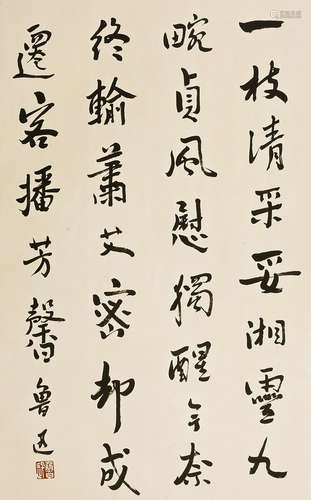 一枝清采妥湘靈九
畹貞風慰獨醒无奈
終輸蕭艾密却成
遷客播芳馨 魯迅